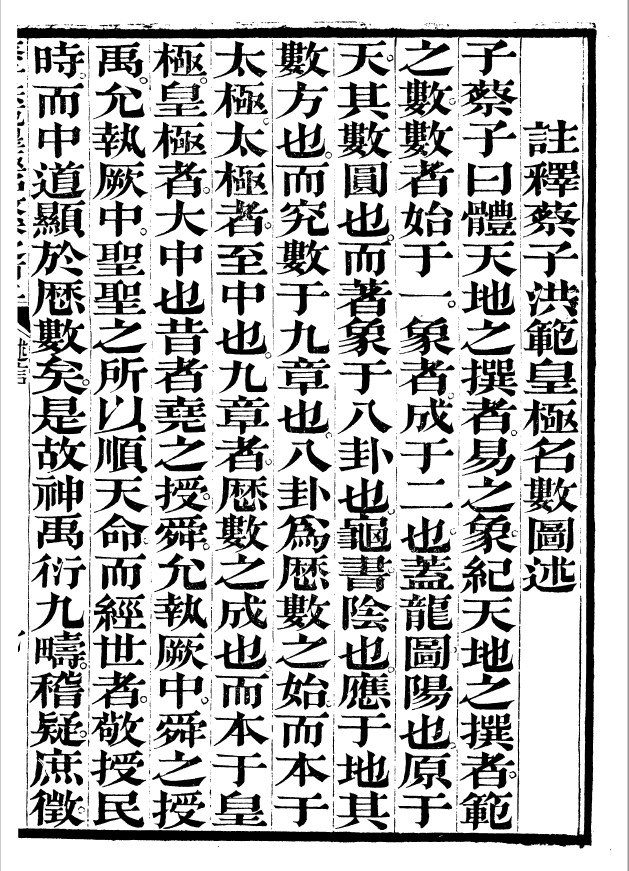 註釋蔡子洪範皇極名數圖述
子蔡子曰體天地之撰者易之象紀天地之撰者範
之數數者始于一象者成于二也蓋龍圖陽也原于
天其數圓也而著象于八卦也龜書陰也應于地其
數方也而究數于九章也八卦爲厯數之始而本于
太極太極者至中也九章者厯數之成也而本于皇
極皇極者大中也昔者堯之授舜允執厥中舜之授
禹允執厥中聖聖之所以順天命而經世者敬授民
時而中道顯於厯數矣是故神禹衍九疇稽疑庶徵